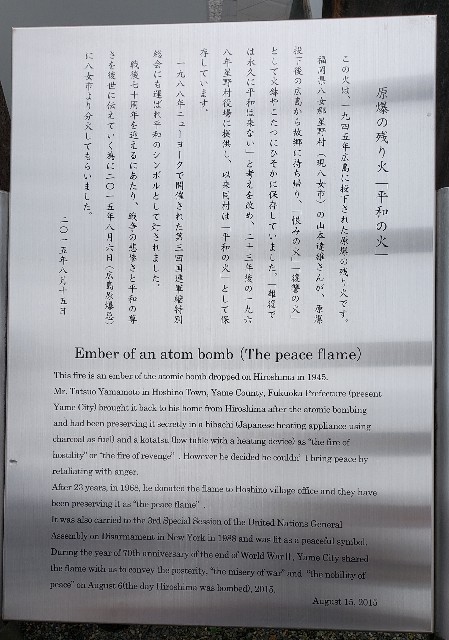 原爆の残り火「平和の火」
この火は、一九四五年広島に投下された原爆の残り火です。
福岡県八女郡星野村（現八女市）の山本達雄さんが、原爆
投下後の広島から故郷に持ち帰り、「恨みの火」「復讐の火」
として火鉢やこたつにひそかに保存していました。「報復で
は永久に平和は来ない」と考えを改め、二十三年後の一九六
八年星野村役場に提供し、以来同村は「平和の火」として保
存しています。
一九八八年ニューヨークで開催された第三回国連軍縮特別
総会にも運ばれ平和のシンボルとして灯されました。
戦後七十周年を迎えるにあたり、戦争の悲惨さと平和の尊
さを後世に伝えていく為に二〇一五年八月六日（広島原爆忌）
に八女市より分火してもらいました。
二〇一五年八月十五日
Ember of an atom bomb (The peace flame)
This fire is an ember of the atomic bomb dropped on Hiroshima in 1945.
Mr. Tatsuo Yamamoto in Hoshino Town, Yame County, Fukuoka Prefecture (present
Yame City) brought it back to his home from Hiroshima after the atomic bombing
and had been preserving it secretly in a hibachi (Japanese heating appliance using
charcoal as fuel) and a kotatsu (low table with a heating device) as "the fire of
hostility" or "the fire of revenge" . However he decided he couldn't bring peace by
retaliating with anger.
After 23 years, in 1968, he donated the flame to Hoshino village office and they have
been preserving it as "the peace flame" .
It was also carried to the 3rd Special Session of the United Nations General
Assembly on Disarmament in New York in 1988 and was lit as a peaceful symbol.
During the year of 70th anniversary of the end of World War II, Yame City shared
the flame with us to convey the posterity, "the misery of war" and "the nobility of
peace" on August 6(the day Hiroshima was bombed), 2015.
August 15, 2015